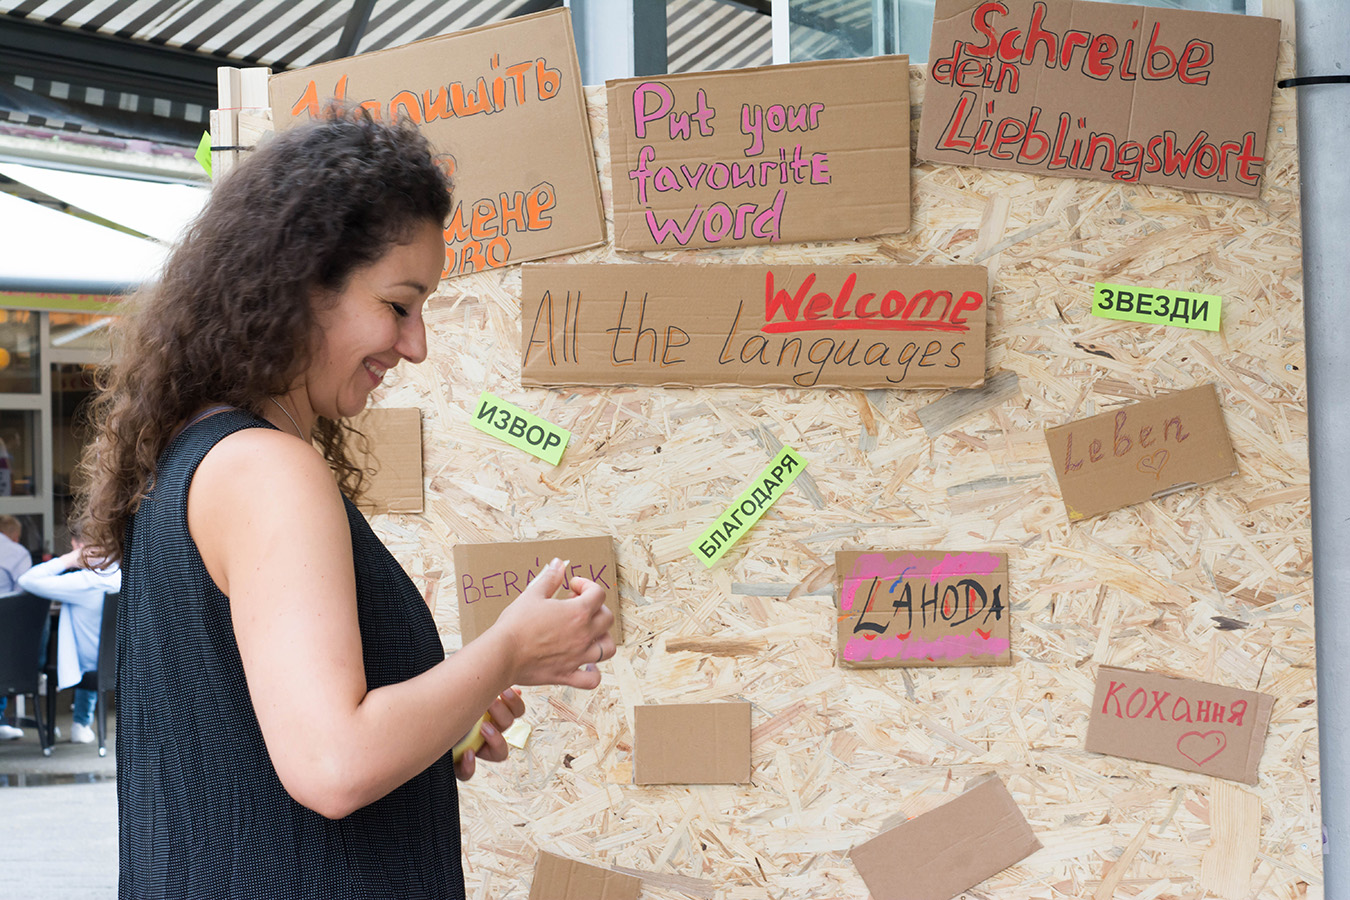 Напишіть
Put your
favourite
word
Schreibe
dein
Lieblingswort
Welcome
All the languages
ЗВЕЗДИ
ИЗВОР
Leben
БЛАГОДАРЯ
BERÁNEK
LÁHODA
Кохання